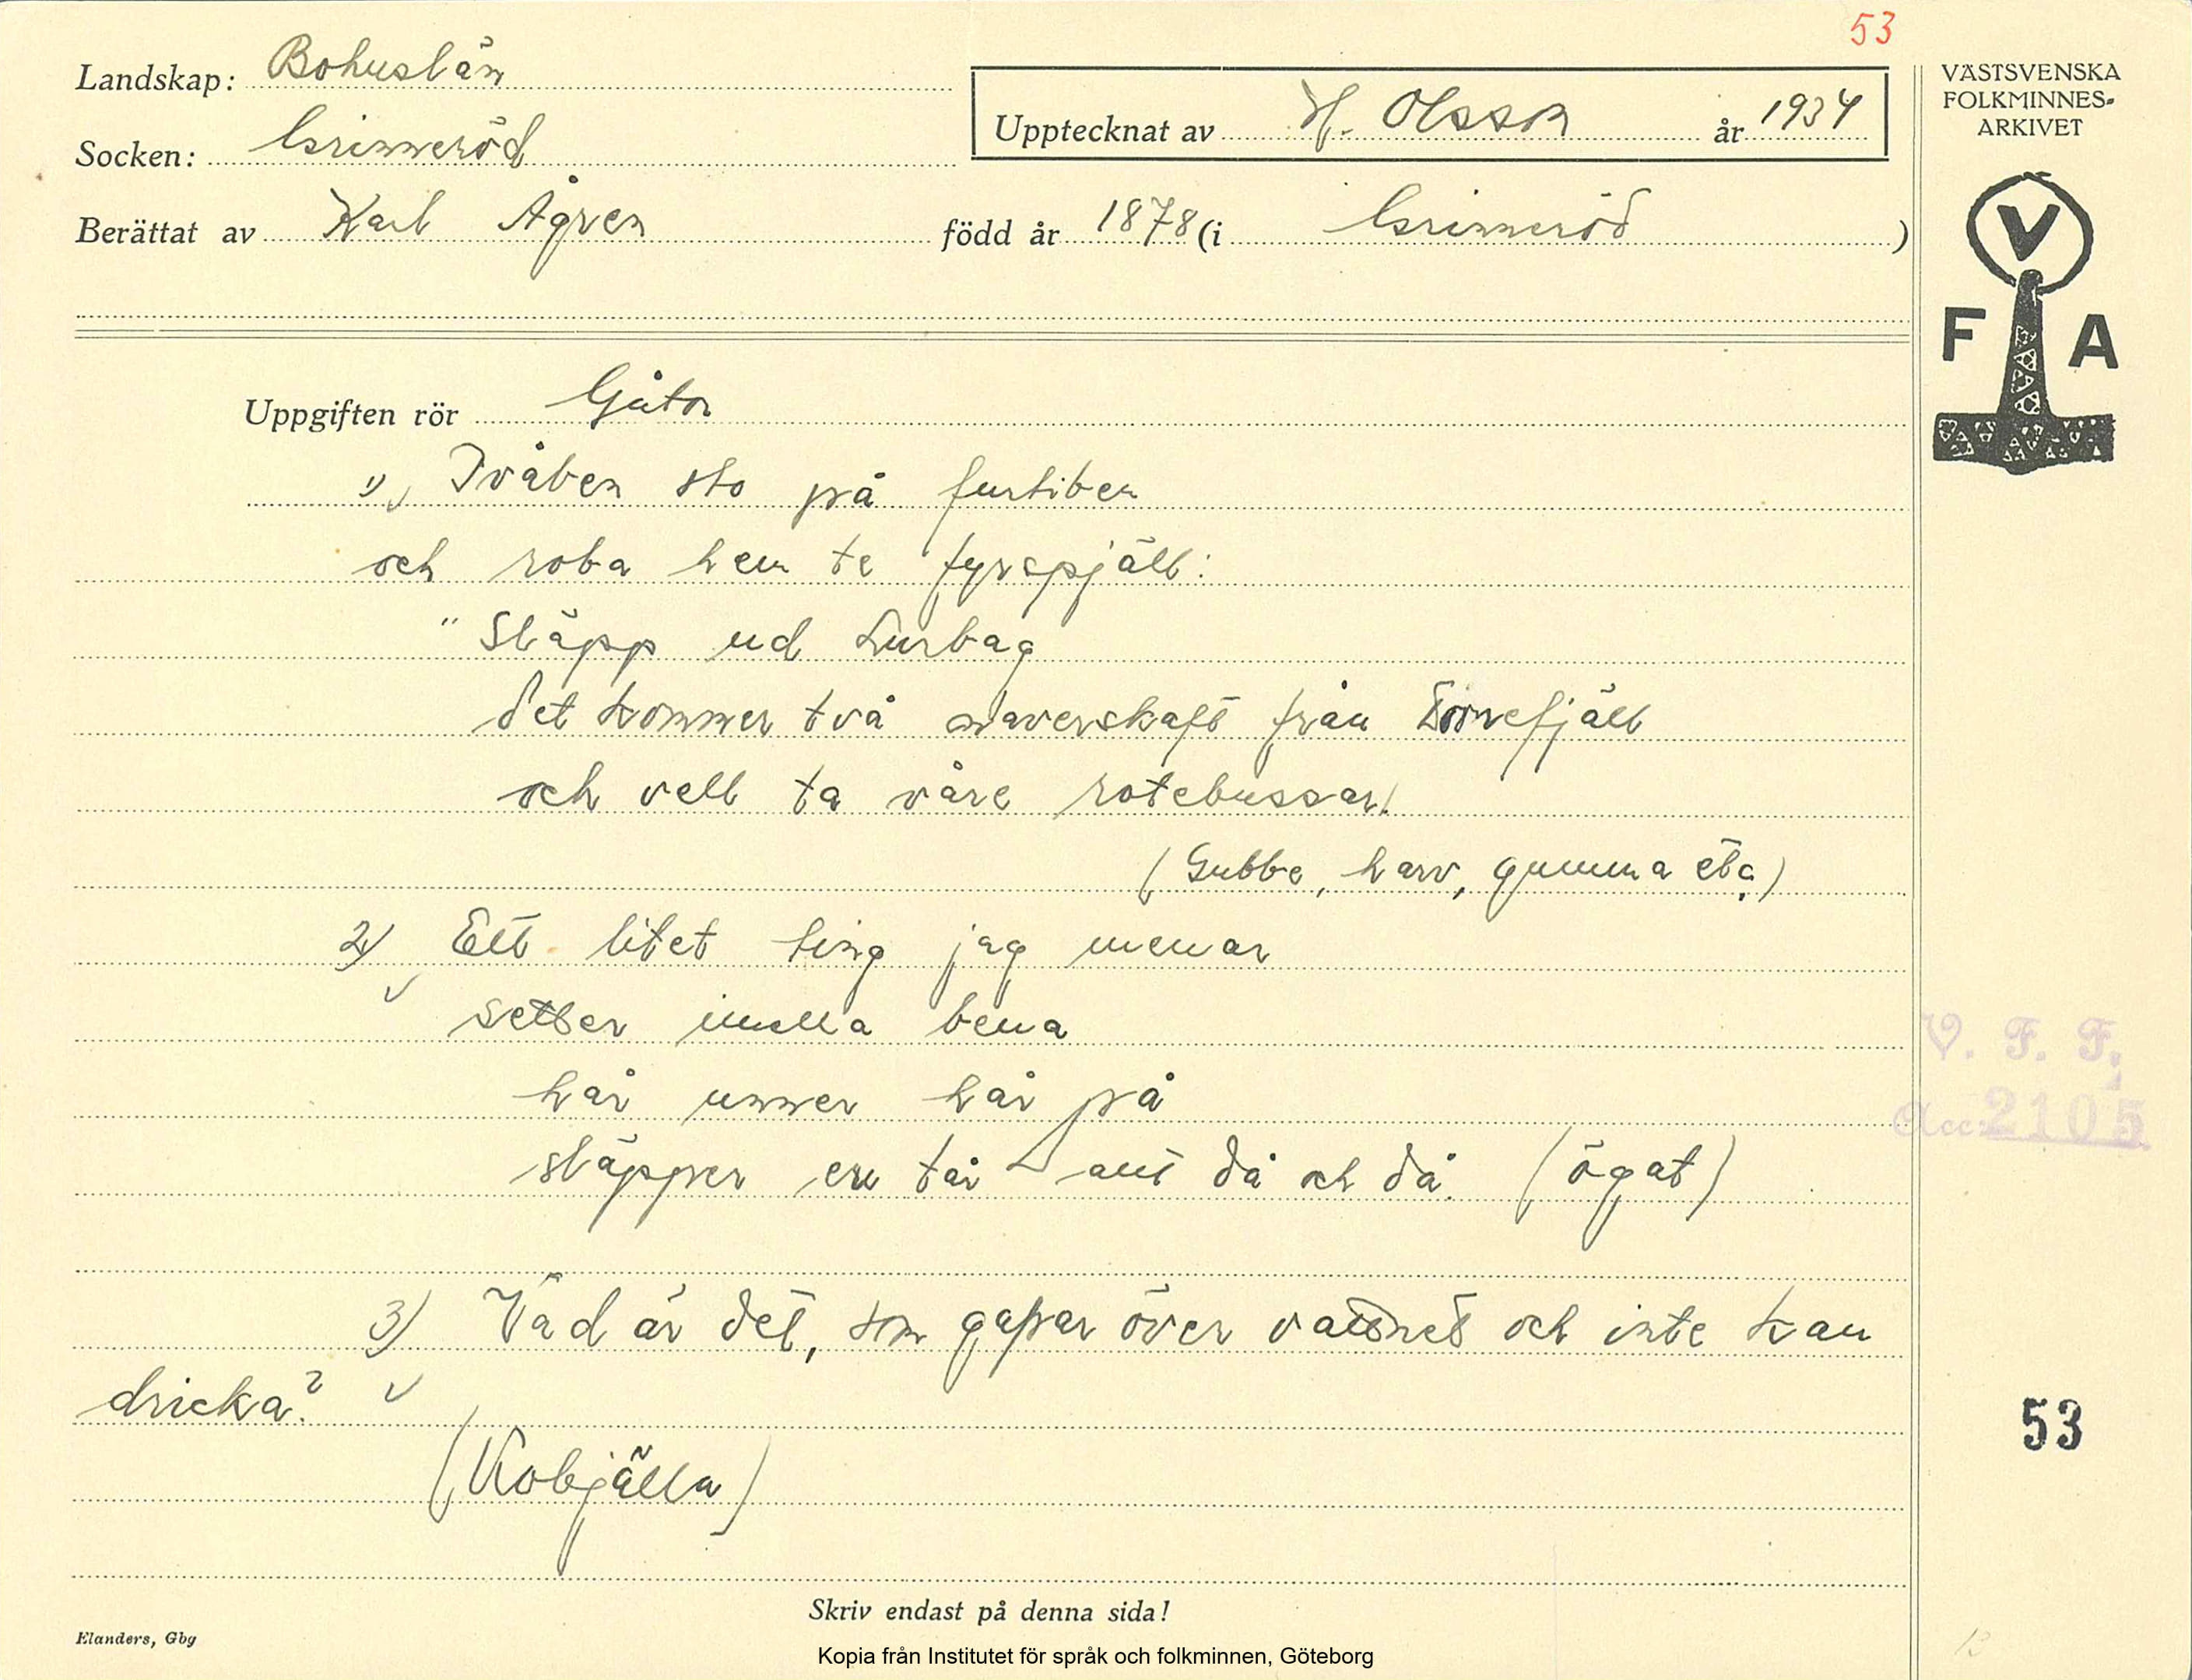 53
Landskap: Bohuslän
Socken: Grinneröd
Upptecknat av H. Olsson år 1934
Berättat av Karl Ågren född år 1878 (i Grinneröd)
VÄSTSVENSKA
FOLKMINNES-
ARKIVET
V
F A
Uppgiften rör Gåtor
1) Tvåben sto på furtiben
och roba hem te fyrspjäll:
"Släpp ud Lurbag
det kommer två naverskaft från
och vell ta våre rotebussar.
(Gubbe, harv, gumma etc.)
2) Ett litet ting jag menar
setter imella bena
hår unner hår på
släpper en tår ant då och då. (ögat)
3) Vad är det, som gapar över vattnet och inte kan
dricka?
(Kobjälla)
V. F. F.
Acc: 2105
53
Skriv endast på denna sida!
Elanders, Gbg
Kopia från Institutet för språk och folkminnen, Göteborg